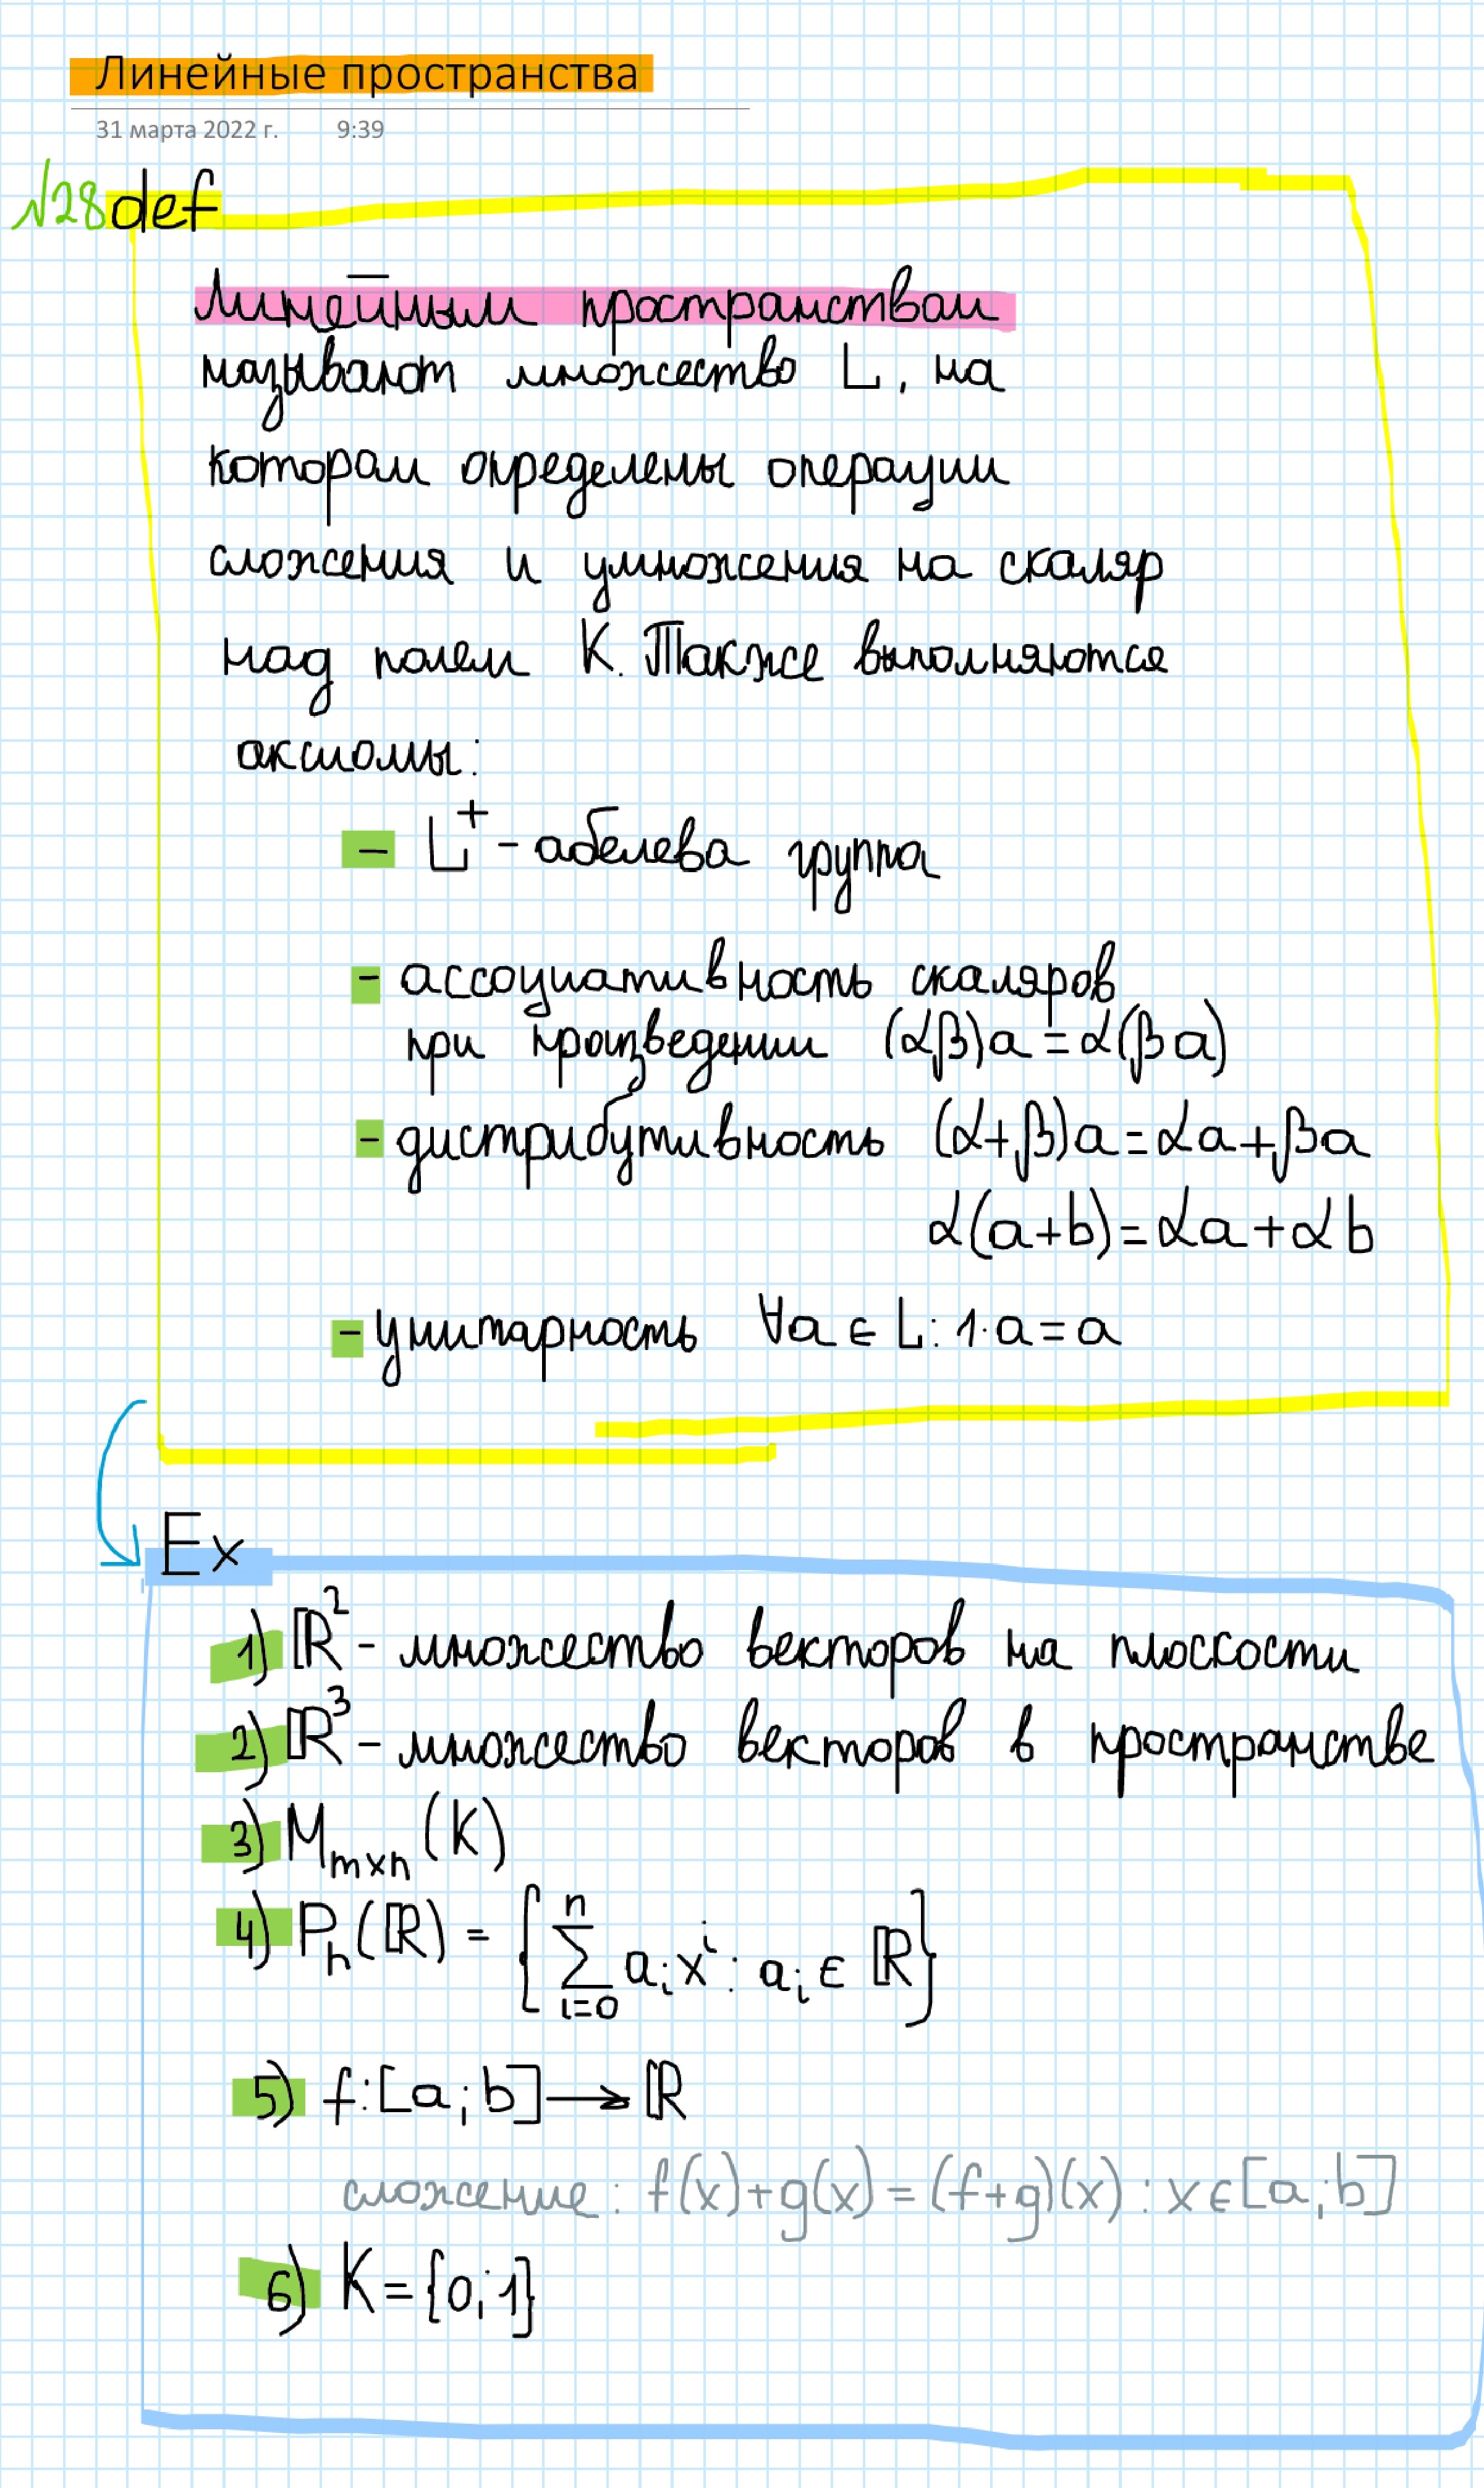 Линейные пространства
31 марта 2022 г. 9:39
№28 def
Линейным пространством
называют множество L, на
котором определены операции
сложения и умножения на скаляр
над полем K. Также выполняются
аксиомы:
- L⁺ - абелева группа
- ассоциативность скаляров
при произведении (αβ)a = α(βa)
- дистрибутивность (α+β)a = αa + βa
α(a+b) = αa + αb
- унитарность ∀a ∈ L: 1·a = a
Ex
1) ℝ² - множество векторов на плоскости
2) ℝ³ - множество векторов в пространстве
3) M_{m×n}(K)
4) P_n(ℝ) = {∑_{i=0}^{n} a_i x^i : a_i ∈ ℝ}
5) f: [a; b] → ℝ
сложение: f(x)+g(x) = (f+g)(x) : x∈[a; b]
6) K = {0; 1}